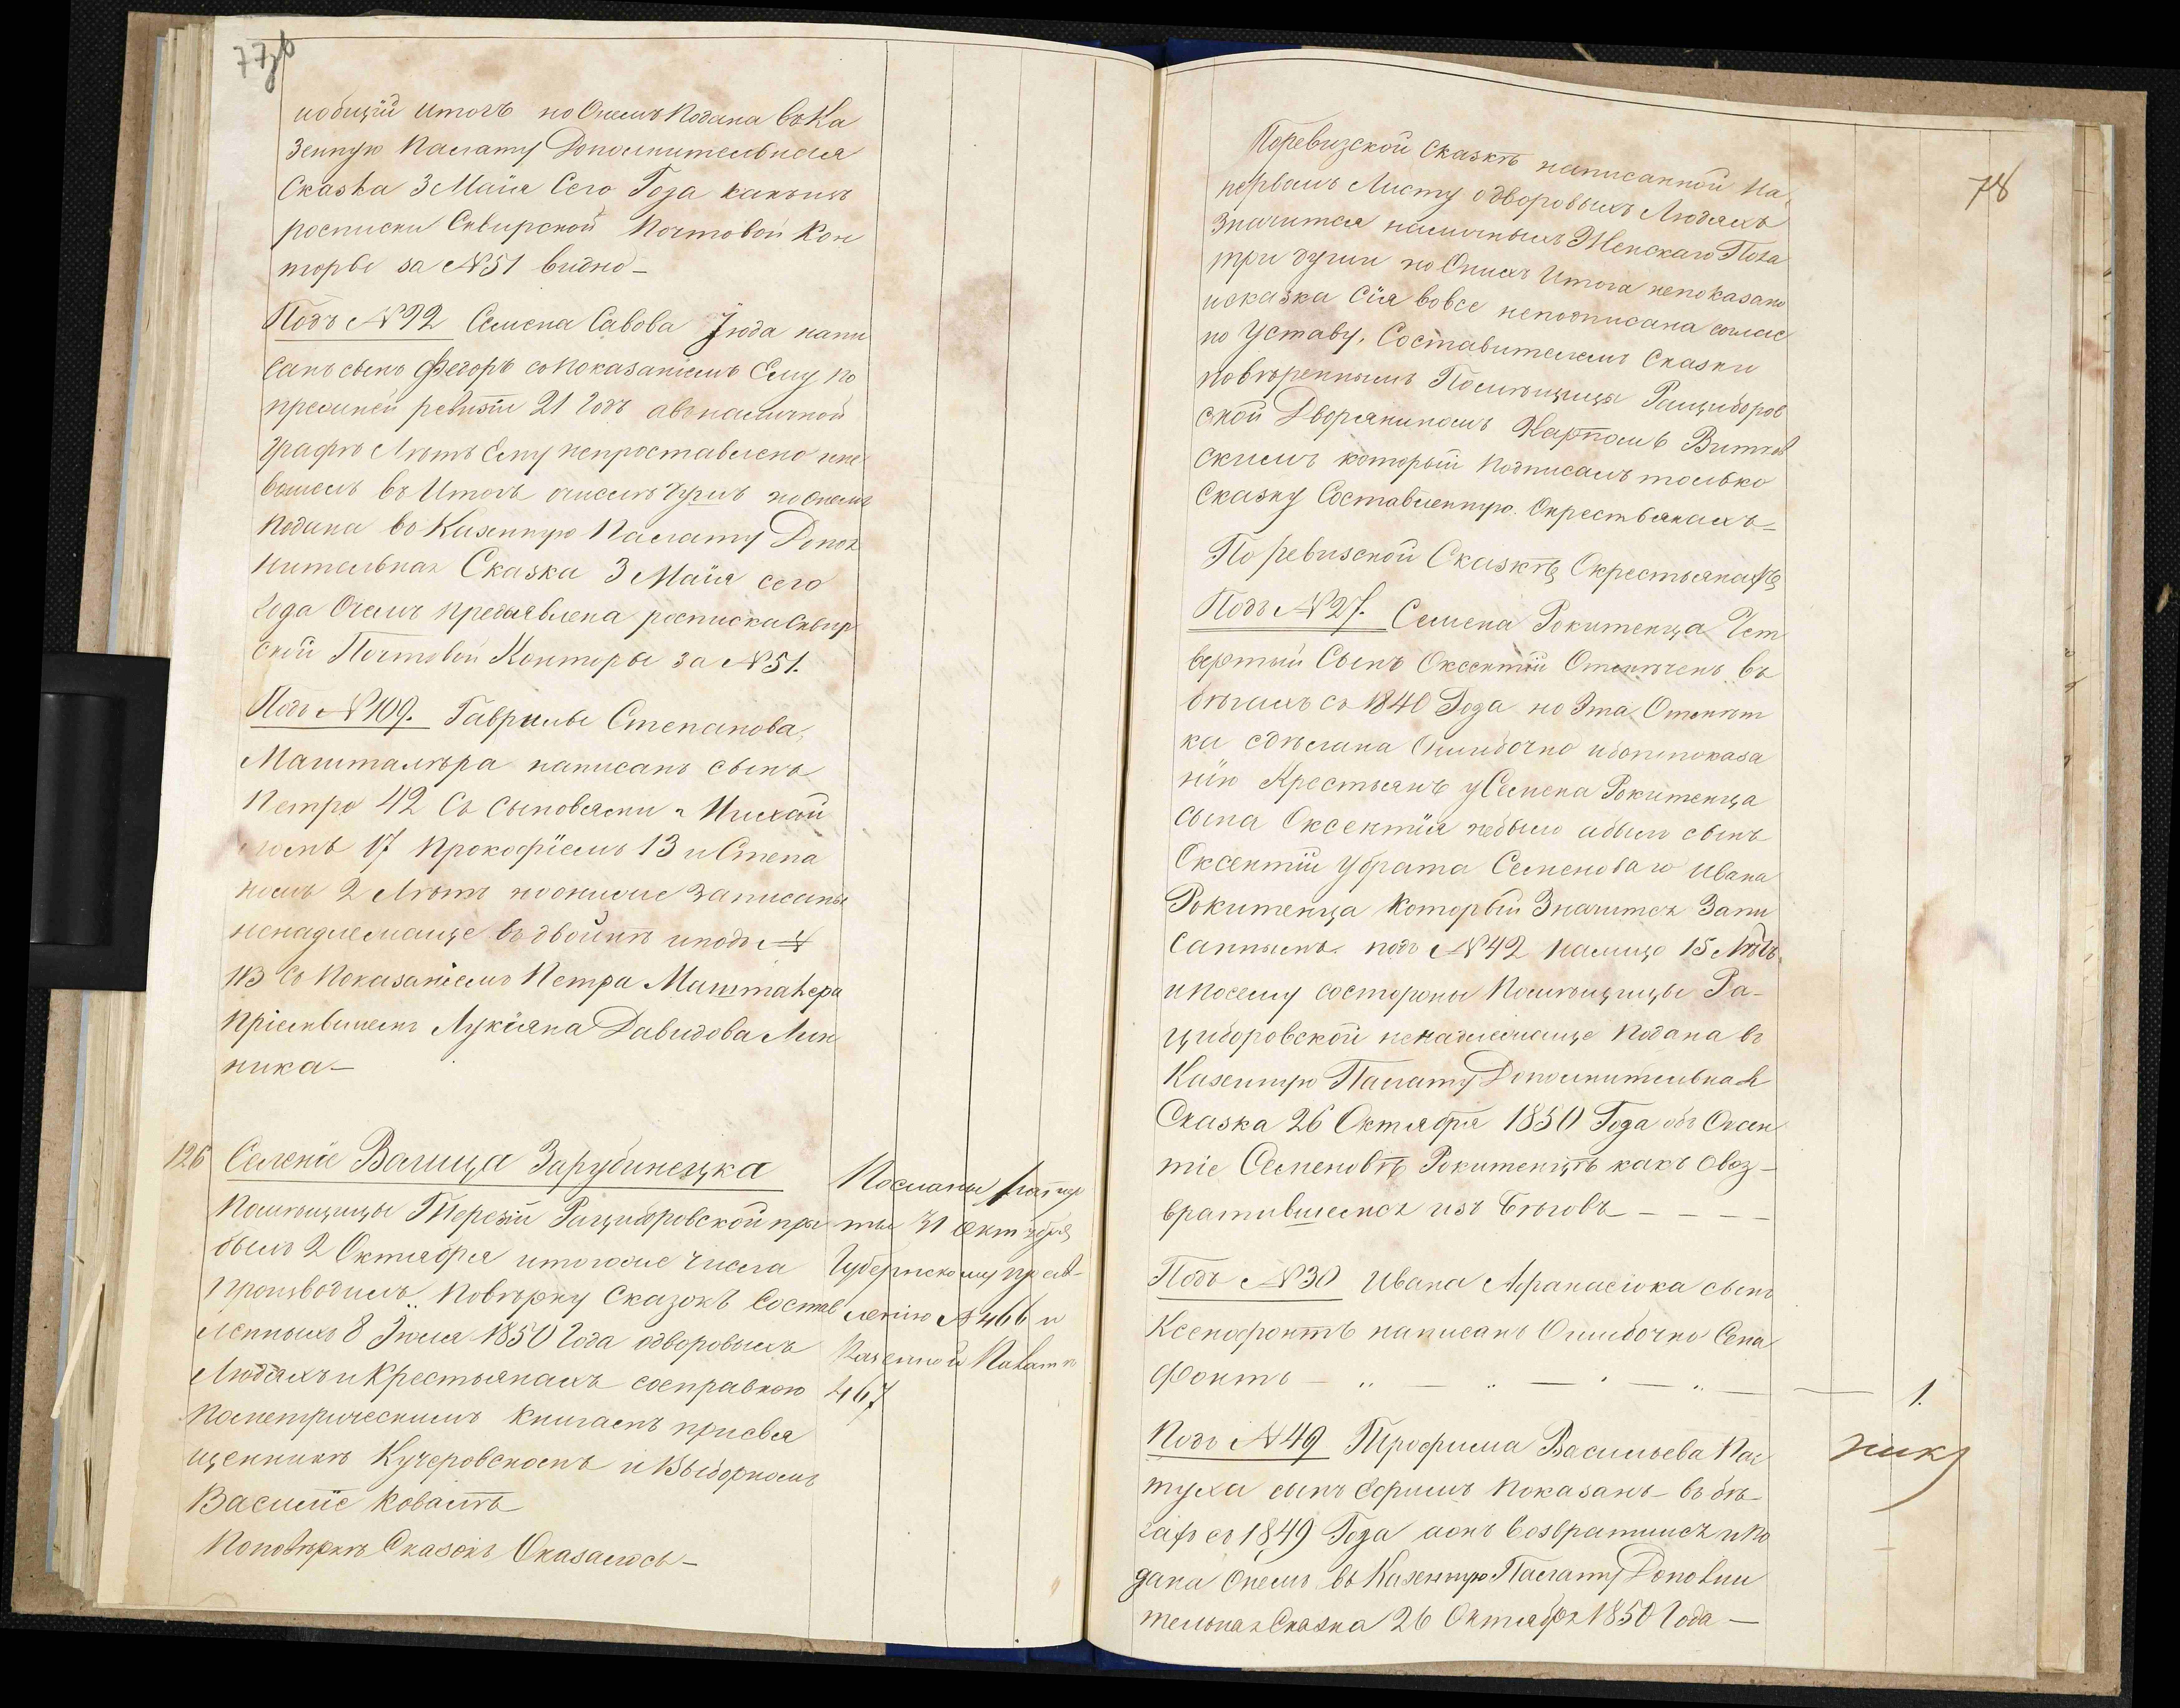 77об
и общій итогъ но о чемъ подана въ Ка
зенную Палату Дополнительная
Сказка 3 Маія Сего Года какъ изъ
росписки Сквирской Почтовой Кон
торы за №51 видно –
Подъ №92 Семена Савова Июда напи
санъ сынъ Федоръ со показаніемъ Ему по
прежней ревизіи 21 годъ а въ наличной
графѣ Лѣтъ Ему непроставлено и не
вошелъ въ Итогъ числомъ душъ но о чемъ
подана въ Казенную Палату Допол
нительная Сказка 3 Маія сего
года О чемъ предъявлена росписка Сквир
ской Почтовой Конторы за №51.
Подъ №109. Гаврилы Степанова,
Машталѣра написанъ сынъ
Петро 42 Съ Сыновьями Михай
ломъ 17 Прокофіемъ 13 и Степа
номъ 2 Лѣтъ но они же записаны
ненадлежаще въ двойнѣ и подъ №
113 Съ Показаніемъ Петра Машталера
пріемышемъ Лукіяна Давидова Мель
ника –
126 Селеніе Волица Зарубинецка
Помѣщицы Терезіи Рациборовской при
былъ 2 Октября и того же числа
производилъ повѣрку Сказокъ Состав
ленныхъ 8 Іюля 1850 Года о дворовыхъ
Людяхъ и Крестьянахъ со справкою
по метрическимъ Книгамъ при свя
щенникѣ Кучеровскомъ и выборномъ
Василіе Ковалѣ
По повѣркѣ Сказокъ Оказалось –
Посланы рапор
ты 31 Октября
Губернскому прав-
ленію №466 и
Казенной Палатѣ
467
78
По ревизской сказкѣ написанной на
первомъ Листу о дворовыхъ Людяхъ
значится наличныхъ Женскаго Пола
три души но Онихъ Итога непоказано
и сказка Сія вовсе неподписана соглас
но Уставу, Составителемъ Сказки
повѣреннымъ Помѣщицы Рациборов
ской Дворяниномъ Карпомъ Витков
скимъ который подписалъ только
Сказку Составленную о крестьянахъ –
По ревизской Сказкѣ о крестьянахъ
Подъ №27. Семена Рокитенца Чет
вертый Сынъ Оксентій Отмѣченъ въ
бѣгахъ съ 1840 Года но Эта Отмѣт
ка сдѣлана Ошибочно ибо по показа
нію Крестьянъ у Семена Рокитенца
сына Оксентія небыло а былъ сынъ
Оксентій у брата Семеноваго Ивана
Рокитенца который Значится Запи
саннымъ подъ №42 налицо 15 Лѣтъ,
и посему со стороны Помѣщицы Ра-
циборовской ненадлежаще подана въ
Казенную Палату Дополнительная
Сказка 26 Октября 1850 Года объ Оксен
тіе Семеновѣ Рокитенцѣ какъ о воз-
вратившемся изъ Бѣговъ – – – –
Подъ №30 Ивана Афанасюка сынъ
Ксенофонтъ написанъ Ошибочно Сена
фонтъ – „ – „ – „ – „ – 1.
Подъ №49 Трофима Васильева Пас
туха сынъ Ефимъ Показанъ въ бѣ
гахъ съ 1849 Года а онъ возвратился и по
дана О немъ въ Казенную Палату Дополни
тельная Сказка 26 Октября 1850 Года –